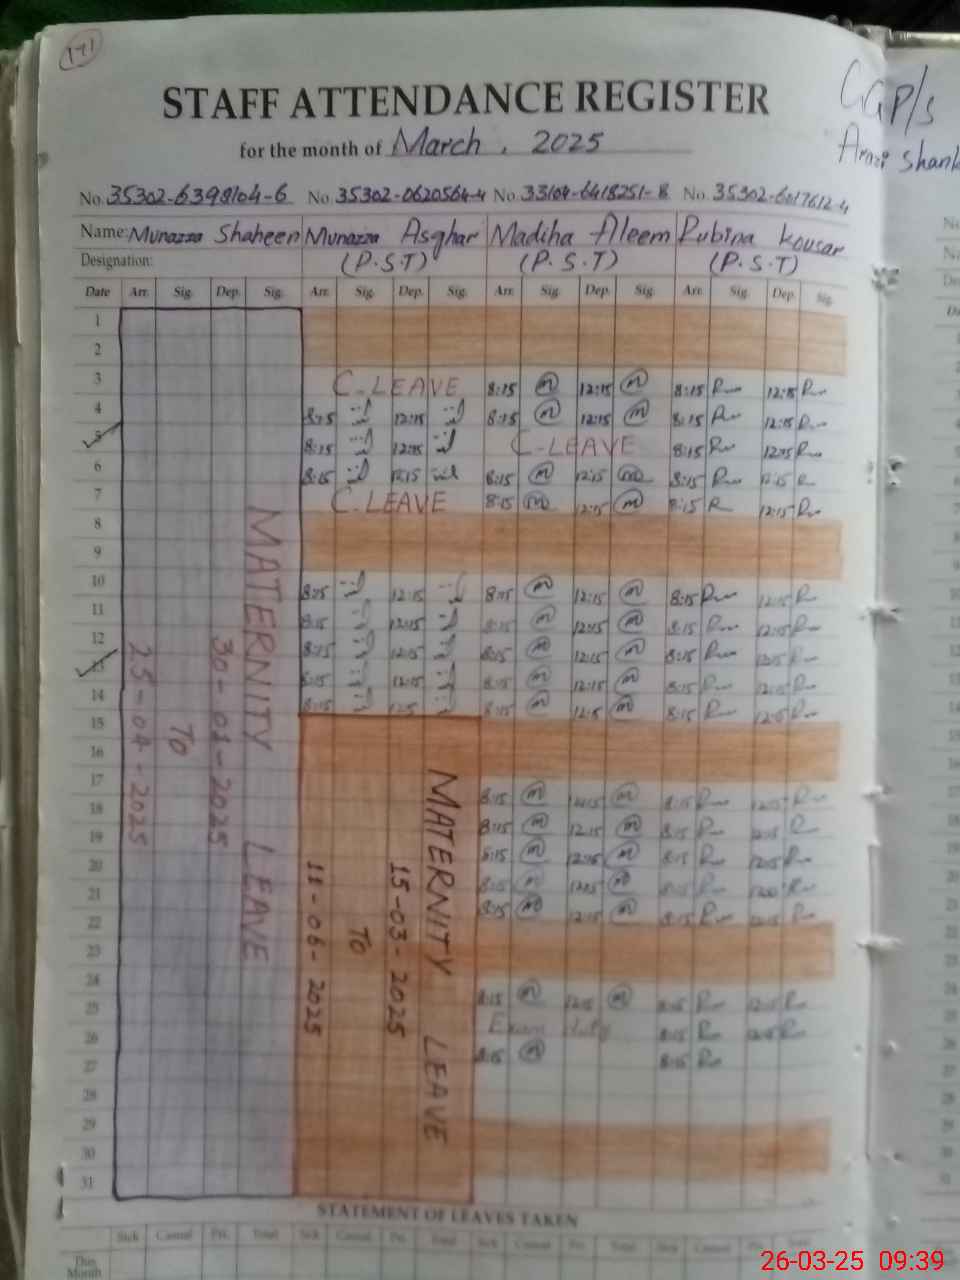 171
STAFF ATTENDANCE REGISTER
for the month of March, 2025
GGP/S
Arazi Shank
No. 35302-6398104-6 No. 35302-0620564-4 No. 33104-6418251-8 No. 35302-6017612-4
Name: Munazza Shaheen Munazza Asghar Madiha Aleem Rubina Kousar
Designation: (P.S.T) (P.S.T) (P.S.T)
Date Arr. Sig. Dep. Sig. Arr. Sig. Dep. Sig. Arr. Sig. Dep. Sig. Arr. Sig. Dep. Sig.
1
2
3 C-LEAVE 8:15 m 12:15 m 8:15 12:15
4 8:15 12:15 8:15 m 12:15 m 8:15 12:15
5 8:15 12:15 C-LEAVE 8:15 12:15
6 8:15 12:15 8:15 m 12:15 m 8:15 12:15
7 C-LEAVE 8:15 m 12:15 m 8:15 R 12:15
8
9
10 8:15 12:15 8:15 m 12:15 m 8:15 12:15
11 8:15 12:15 8:15 m 12:15 m 8:15 12:15
12 8:15 12:15 8:15 m 12:15 m 8:15 12:15
13 8:15 12:15 8:15 m 12:15 m 8:15 12:15
14 8:15 12:5 8:15 m 12:5 m 8:15 12:5
15
16
17 8:15 m 12:15 m 8:15 12:15
18 8:15 m 12:15 m 8:15 12:15
19 8:15 m 12:15 m 8:15 12:15
20 8:15 m 12:15 m 8:15
21 8:15 m 12:15 m 8:15 12:15
22
23
24 8:15 m 12:15 m 8:15 12:15
25 Exam duty 8:15 12:15
26 8:15 m 8:15
27
28
29
30
31
MATERNITY LEAVE
30-01-2025
To
25-04-2025
MATERNITY LEAVE
15-03-2025
To
11-06-2025
STATEMENT OF LEAVES TAKEN
Sick Casual Pri. Total Sick Casual Pri. Total Sick Casual Pri. Total Sick Casual Pri.
This
Month
26-03-25 09:39